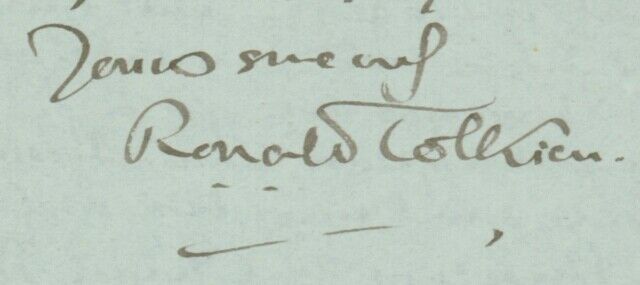 Yours sincerely
Ronald Tolkien.